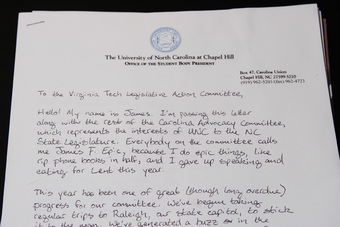 The University of North Carolina at Chapel Hill
Office of the Student Body President
Box 47, Carolina Union
Chapel Hill, NC 27599-5210
To the Virginia Tech Legislative Action Committee,
Hello! My name is James. I'm passing this letter
along with the rest of the Carolina Advocacy Committee,
which represents the interests of UNC to the NC
State Legislature. Everybody on the committee calls
me James F. Epic, because I do epic things, like
rip phone books in half, and I gave up speaking and
eating for Lent this year.
This year has been one of great (though long overdue)
progress for our committee. We've begun taking
regular trips to Raleigh, our state capitol, to stick
it to the man. We've generated a buzz in the